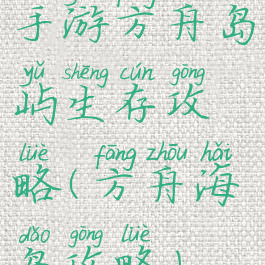 手游方舟岛
yǔ shēng cún gōng
屿生存攻
lüè fāng zhōu hǎi
略(方舟海
dǎo gōng lüè
岛攻略)